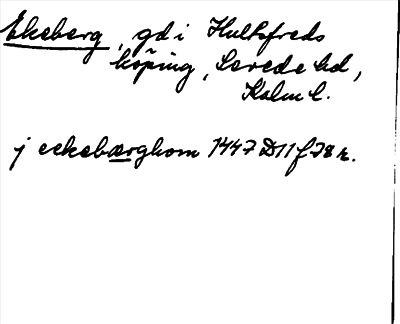 Ekeberg, gd i Hultsfreds
köping, Sevede hd,
Kalm l.
j ekebærghom 1447 D11 f 78 r.